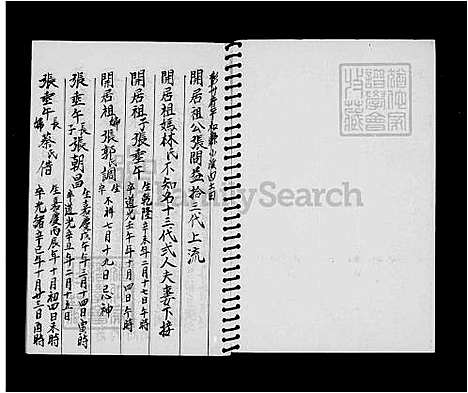 開居祖公張開益拾三代上流
開居祖媽林氏不知名十三代弍人夫妻下接
開居祖子張垂午 生乾隆辛未年二月十七日午時
卒道光壬午年十月四日午時
開居祖媳張郭氏調 生
卒 不祥七月十九日忌神
張垂午長子張朝昌 生嘉慶戊午年三月十四日寅時
卒道光辛丑年二月十五日
張垂午長媳蔡氏借 生嘉慶丙辰年十月初四日未時
卒光緒辛巳年十月廿三日酉時
FamilySearch